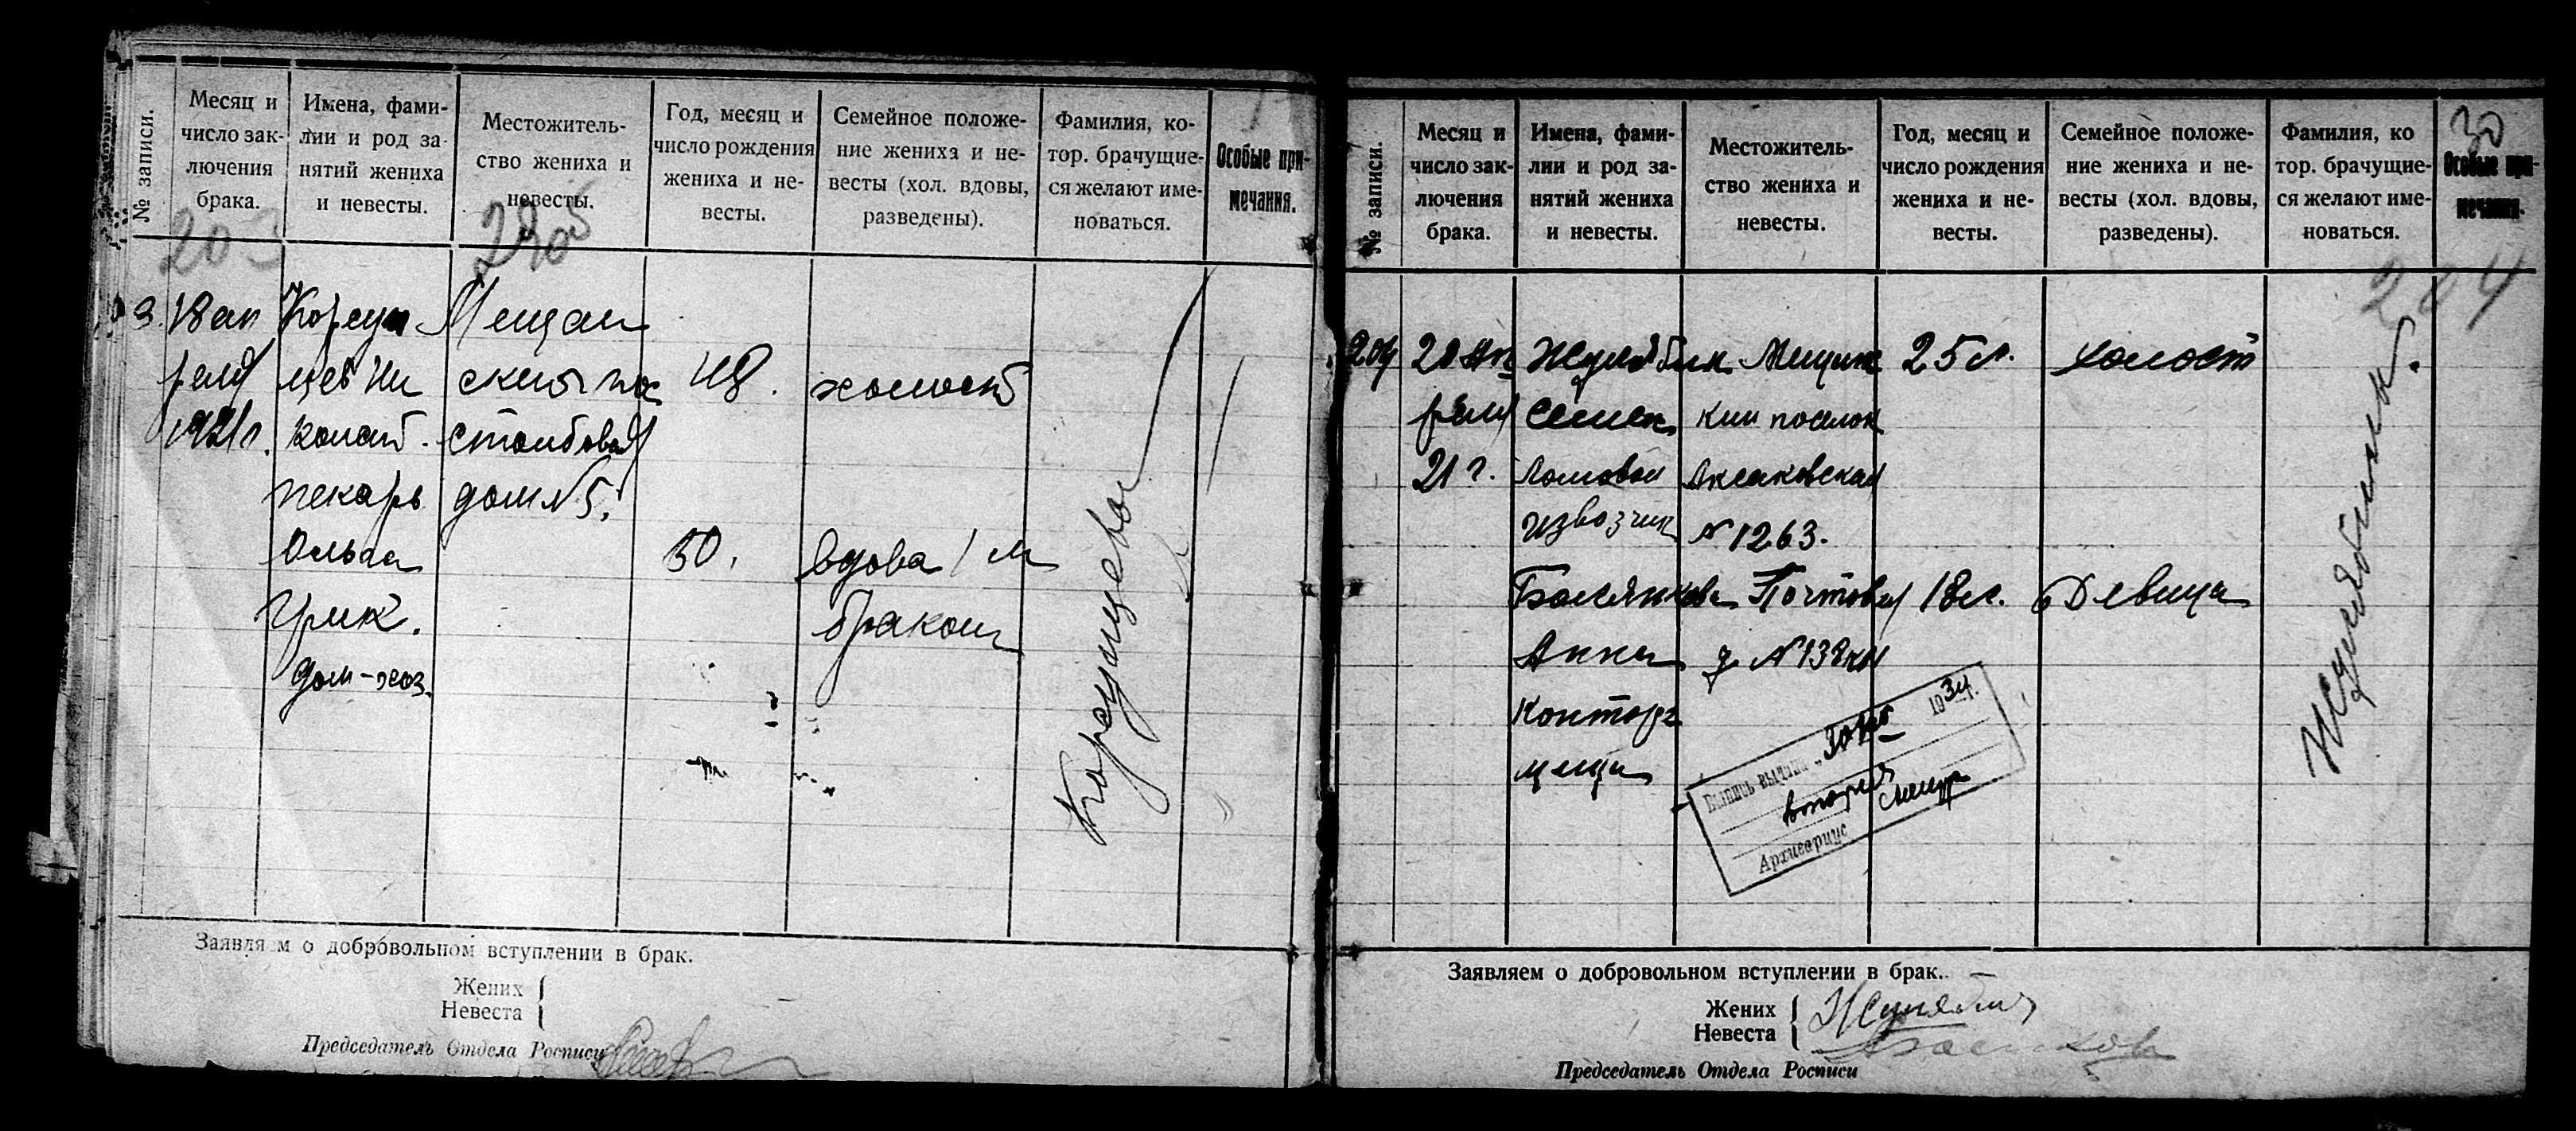 № записи.
Месяц и
число зак-
лючения
брака.
Имена, фами-
лии и род за-
нятий жениха
и невесты.
Местожитель-
ство жениха и
невесты.
Год, месяц и
число рождения
жениха и не-
весты.
Семейное положе-
ние жениха и не-
весты (хол. вдовы,
разведены).
Фамилия, ко-
тор. брачущие-
ся желают име-
новаться.
Особые при-
мечания.
203
3.
18 ап
реля
1921 г.
Корсун
цев Ни
колай.
пекарь
Ольга
дом-хоз.
Мещан
ский пос
столбовая
дом N 5.
48.
50.
холост
вдова 1 м
браком
Корсунцевы
Заявляем о добровольном вступлении в брак.
Жених
Невеста
Председатель Отдела Росписи
№ записи.
Месяц и
число зак-
лючения
брака.
Имена, фами-
лии и род за-
нятий жениха
и невесты.
Местожитель-
ство жениха и
невесты.
Год, месяц и
число рождения
жениха и не-
весты.
Семейное положе-
ние жениха и не-
весты (хол. вдовы,
разведены).
Фамилия, ко
тор. брачущие-
ся желают име-
новаться.
Особые при-
мечания.
30
204
204
20 Ап
реля
21 г.
Семен
Ломовой
извозчик
Анна
Контор
щица
Мещан
кий поселок
Аксаковская
N 1263.
Почтовая
д N 138
25 л.
18 л.
холост
Девица
Выпись выдана
1934.
Архивариус
Заявляем о добровольном вступлении в брак.
Жених
Невеста
Председатель Отдела Росписи